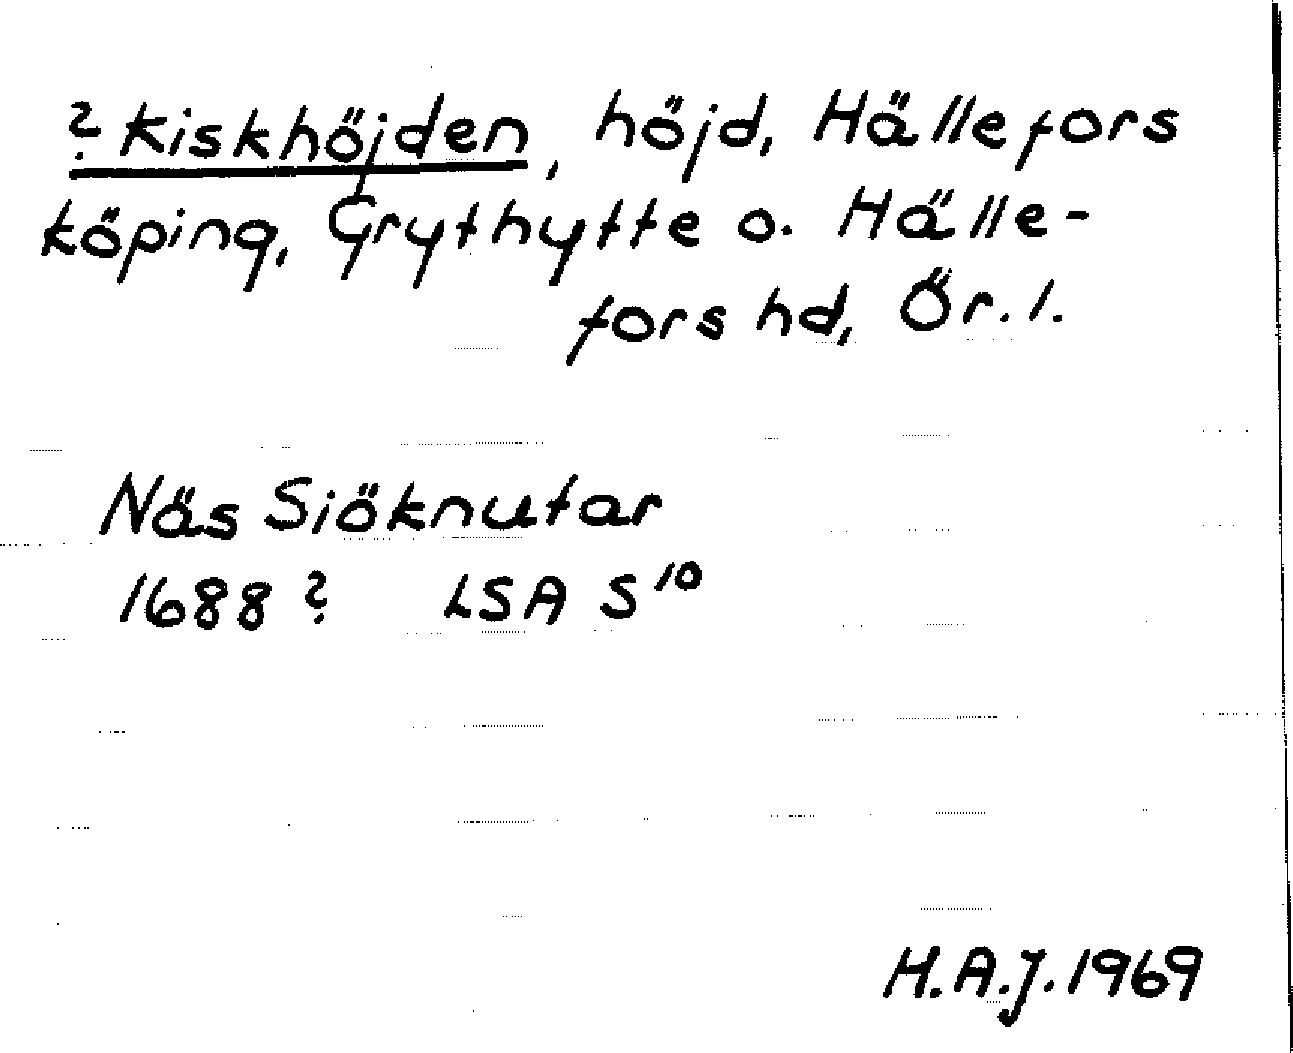 ? Kiskhöjden, höjd, Hällefors
köping, Grythytte o. Hälle-
fors hd, Ör. l.
Näs Siöknutar
1688 ? LSA S 10
H.A.J. 1969